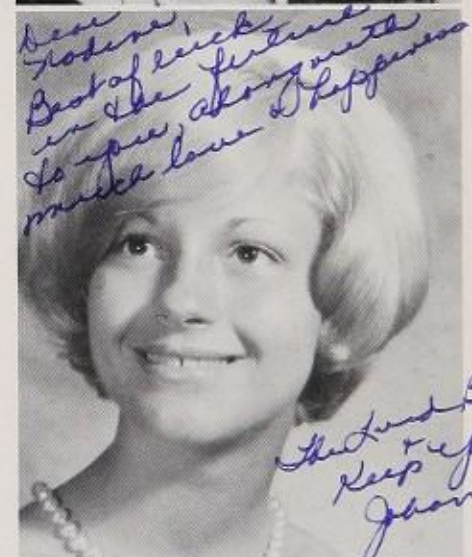 Dear
Nadine,
Best of luck
in the future
to you, along with
much love & happiness
The Lund
+
Keep